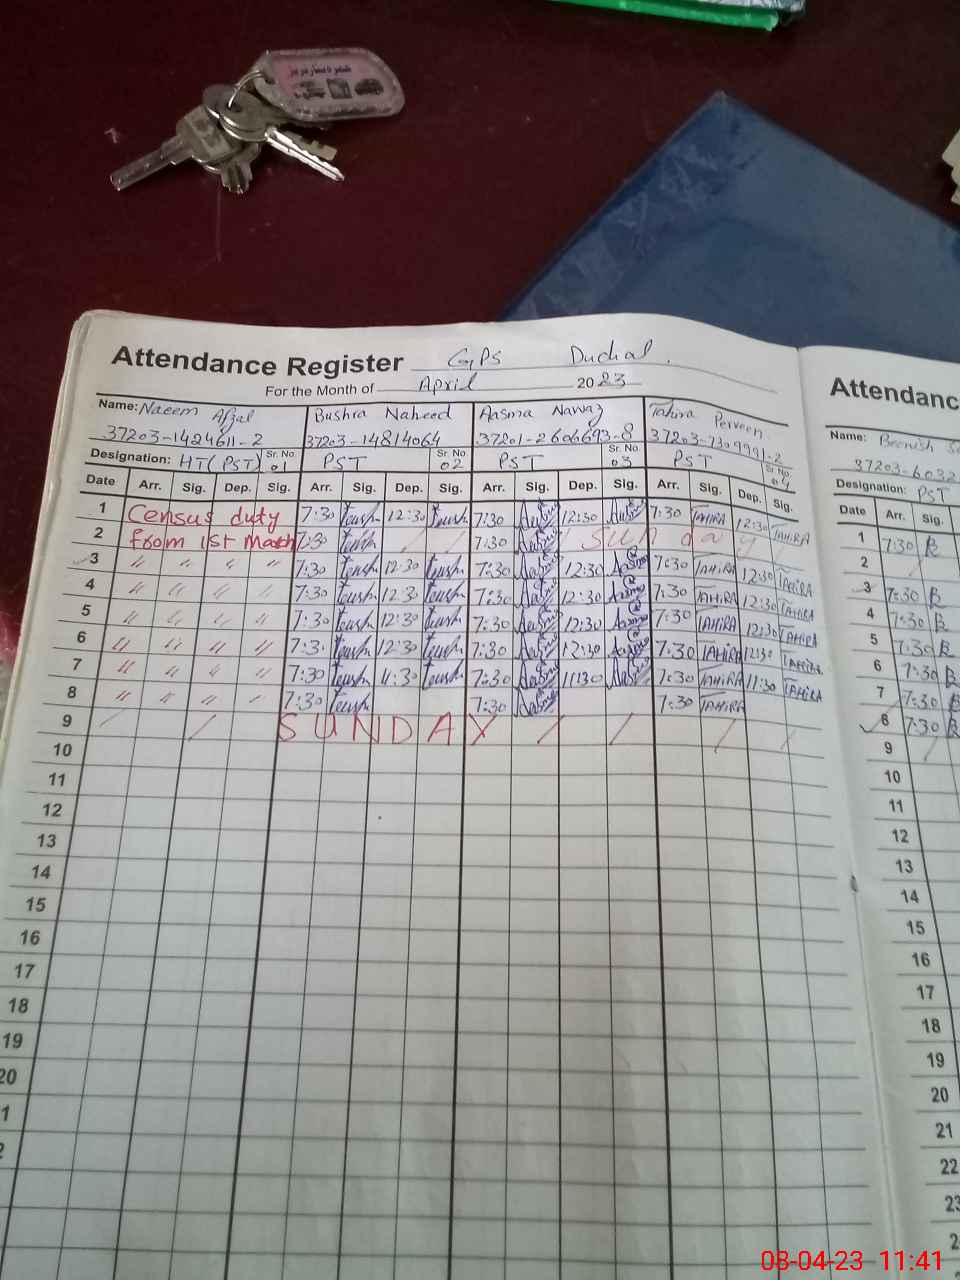 Attendance Register GPS Duchal.
For the Month of April 2023
Name: Naeem Afzal Bushra Naheed Aasma Nawaz Tahira Perveen
37203-1424611-2 37203-14814064 37201-2606693-8 37203-7309991-2
Designation: HT(PST) Sr. No 01 PST Sr. No 02 PST Sr. No 03 PST Sr. No 04
Date Arr. Sig. Dep. Sig. Arr. Sig. Dep. Sig. Arr. Sig. Dep. Sig. Arr. Sig. Dep. Sig.
1 Census duty 7:30 12:30 7:30 12:30 7:30 TAHIRA 12:30 TAHIRA
2 from 1st March 7:30 7:30 Sunday
3 " " " " 7:30 12:30 7:30 12:30 7:30 TAHIRA 12:30 TAHIRA
4 " " " " 7:30 12:30 7:30 12:30 7:30 TAHIRA 12:30 TAHIRA
5 " " " " 7:30 12:30 7:30 12:30 7:30 TAHIRA 12:30 TAHIRA
6 " " " " 7:30 12:30 7:30 12:30 7:30 TAHIRA 12:30 TAHIRA
7 " " " " 7:30 11:30 7:30 11:30 7:30 TAHIRA 11:30 TAHIRA
8 " " " " 7:30 7:30 7:30 TAHIRA
9 SUNDAY
10
11
12
13
14
15
16
17
18
19
20
Attendanc
Name: Beenish
37203-6032
Designation: PST
Date Arr. Sig.
1 7:30 B
2
3 7:30 B
4 7:30 B
5 7:30 B
6 7:30 B
7 7:30 B
8 7:30 B
9
10
11
12
13
14
15
16
17
18
19
20
21
22
23
08-04-23 11:41